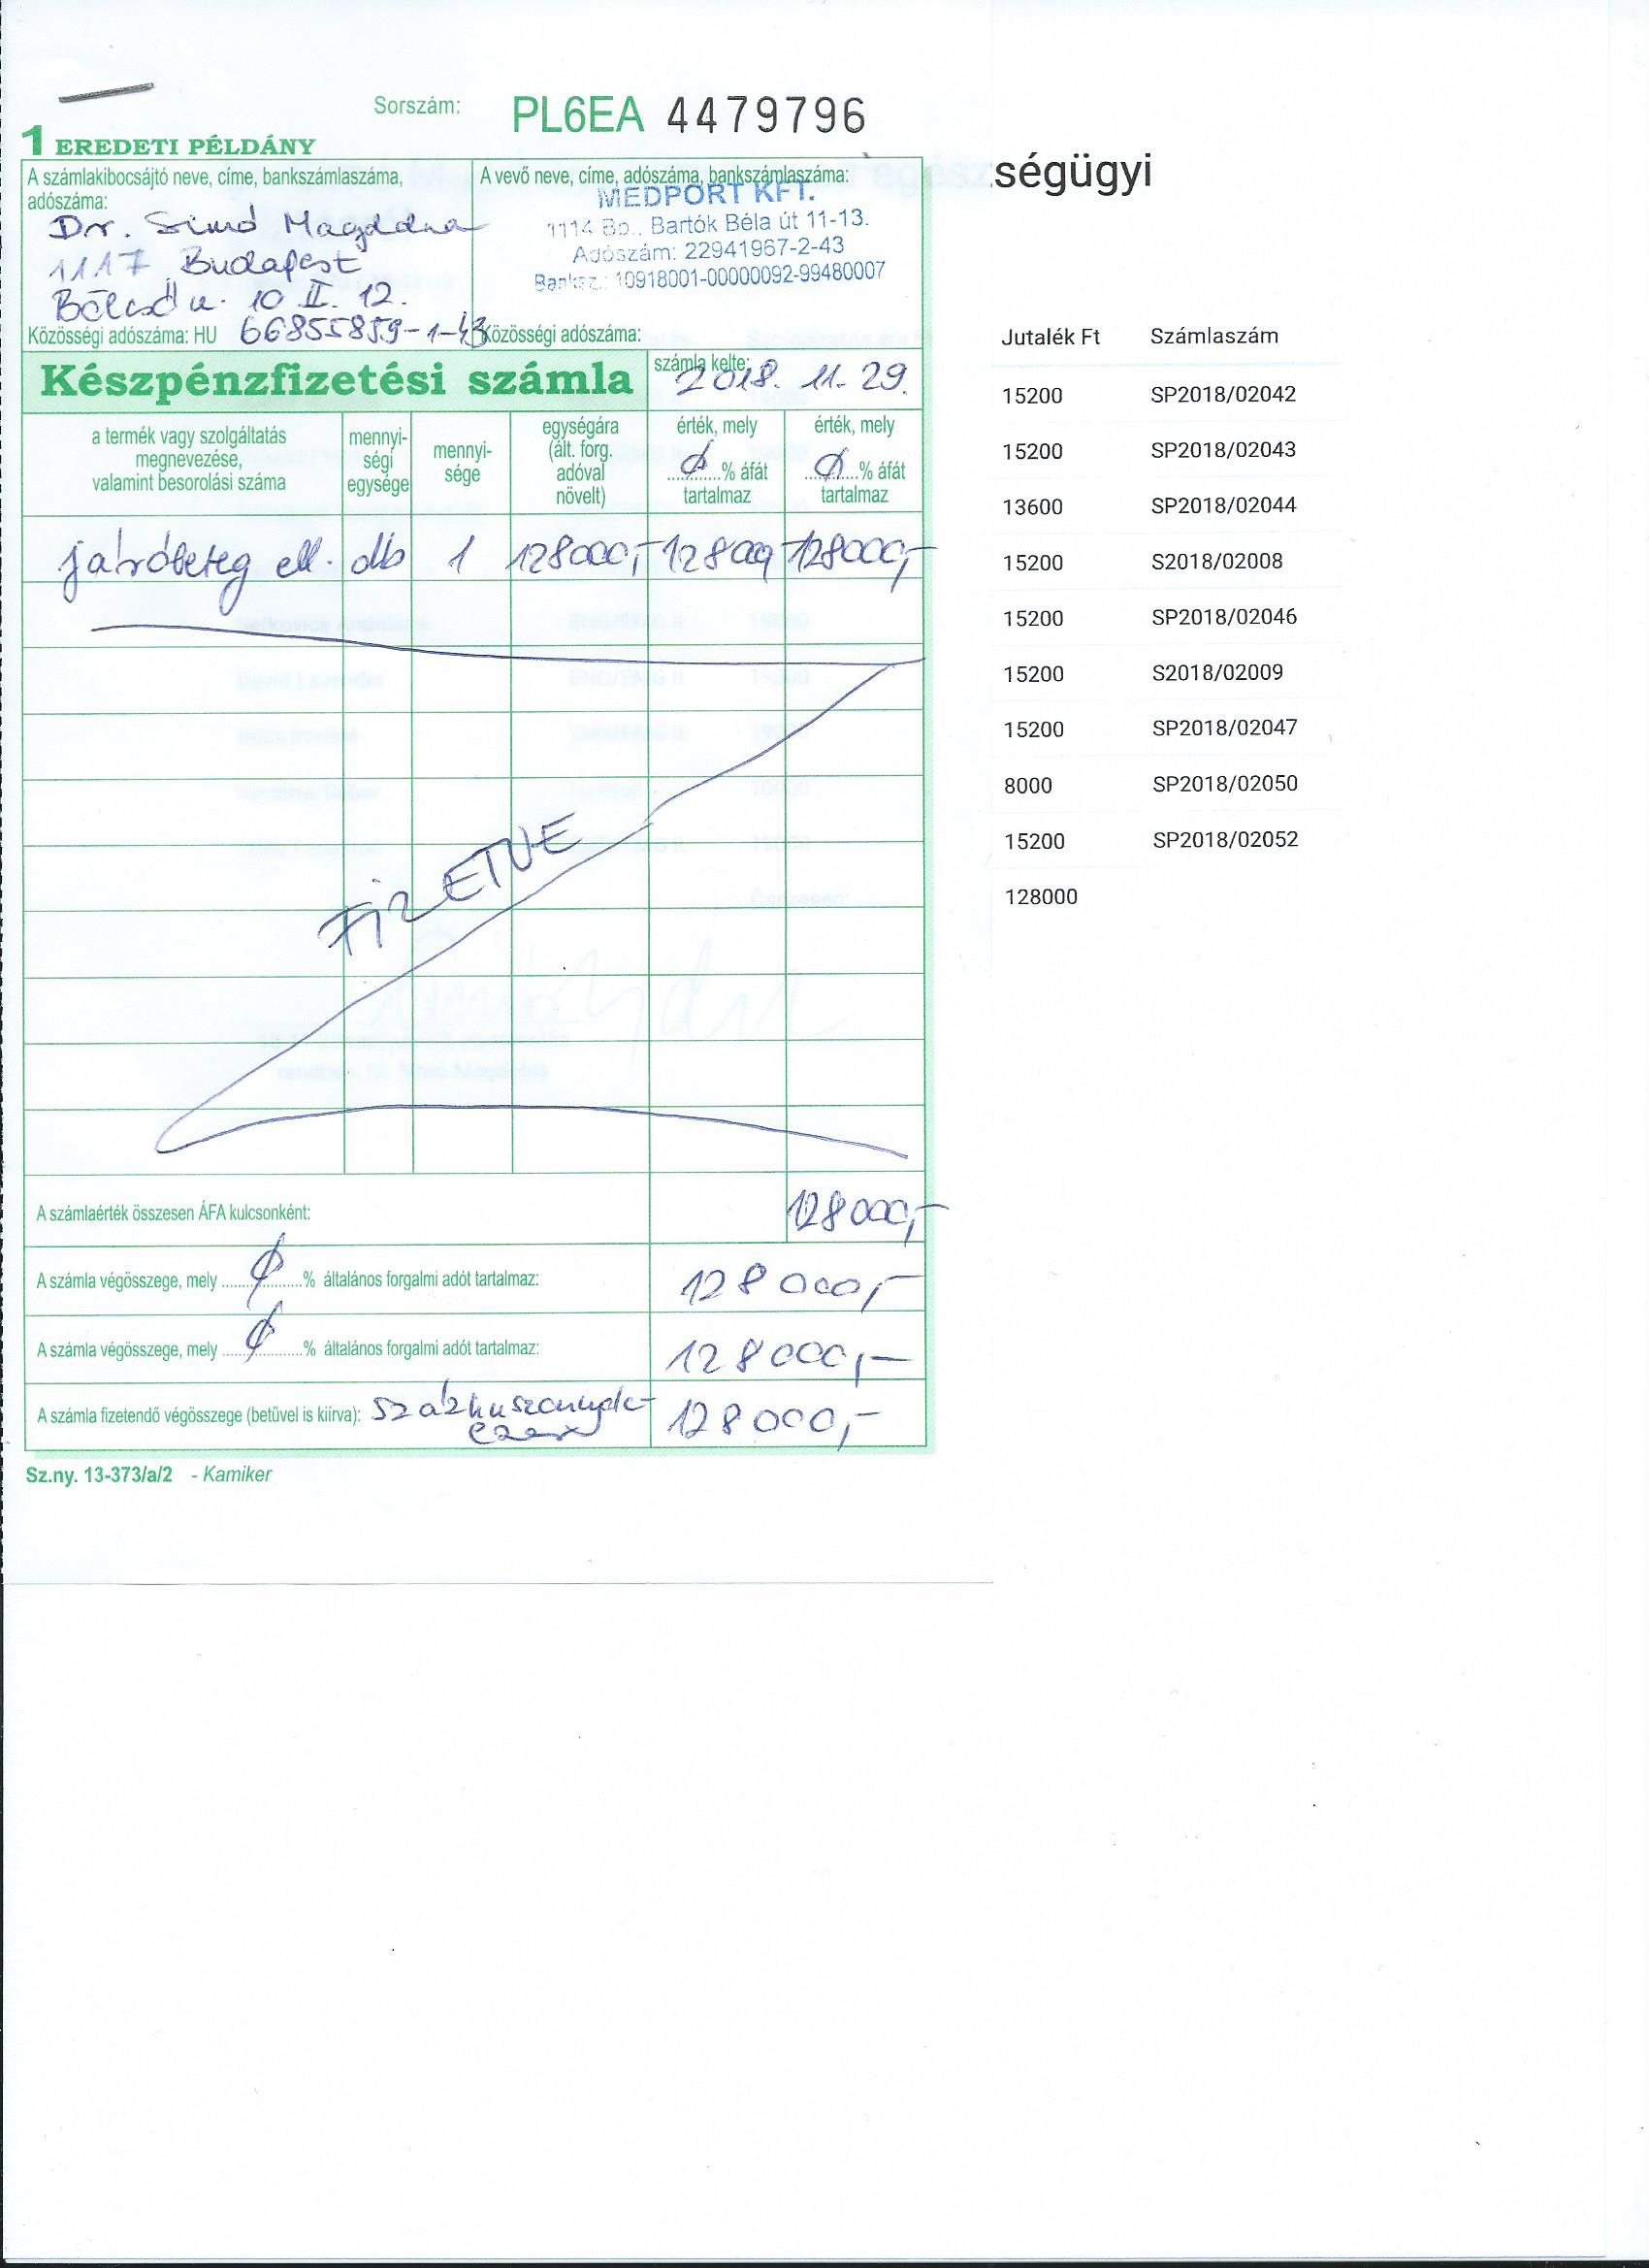 Sorszám: PL6EA 4479796
1 EREDETI PÉLDÁNY
A számlakibocsájtó neve, címe, bankszámlaszáma, adószáma:
Dr. Simó Magdolna
1117 Budapest
Bölcső u. 10 II. 12.
Közösségi adószáma: HU 66855859-1-43
A vevő neve, címe, adószáma, bankszámlaszáma:
MEDPORT KFT.
1114 Bp., Bartók Béla út 11-13.
Adószám: 22941967-2-43
Banksz.: 10918001-00000092-99480007
Közösségi adószáma:
Készpénzfizetési számla
számla kelte: 2018. 11. 29.
a termék vagy szolgáltatás megnevezése, valamint besorolási száma
mennyi-ségi egysége
mennyi-sége
egységára (ált. forg. adóval növelt)
érték, mely ø % áfát tartalmaz
érték, mely ø % áfát tartalmaz
járóbeteg ell. db 1 128000,- 128000 128000,-
FIZETVE
A számlaérték összesen ÁFA kulcsonként: 128000,-
A számla végösszege, mely ø % általános forgalmi adót tartalmaz: 128000,-
A számla végösszege, mely ø % általános forgalmi adót tartalmaz: 128000,-
A számla fizetendő végösszege (betűvel is kiírva): százhuszonnyolc-ezer 128000,-
Sz.ny. 13-373/a/2 - Kamiker
ségügyi
Jutalék Ft Számlaszám
15200 SP2018/02042
15200 SP2018/02043
13600 SP2018/02044
15200 S2018/02008
15200 SP2018/02046
15200 S2018/02009
15200 SP2018/02047
8000 SP2018/02050
15200 SP2018/02052
128000